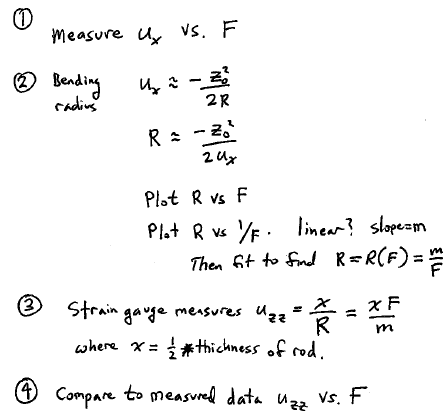 ① Measure u_x vs. F
② Bending radius u_x ≈ - z_0^2 / 2R
R ≈ - z_0^2 / 2u_x
Plot R vs F
Plot R vs 1/F. linear? slope=m
Then fit to find R = R(F) = m/F
③ Strain gauge measures u_zz = x/R = xF/m
where x = 1/2 * thichness of rod.
④ Compare to measured data u_zz vs. F